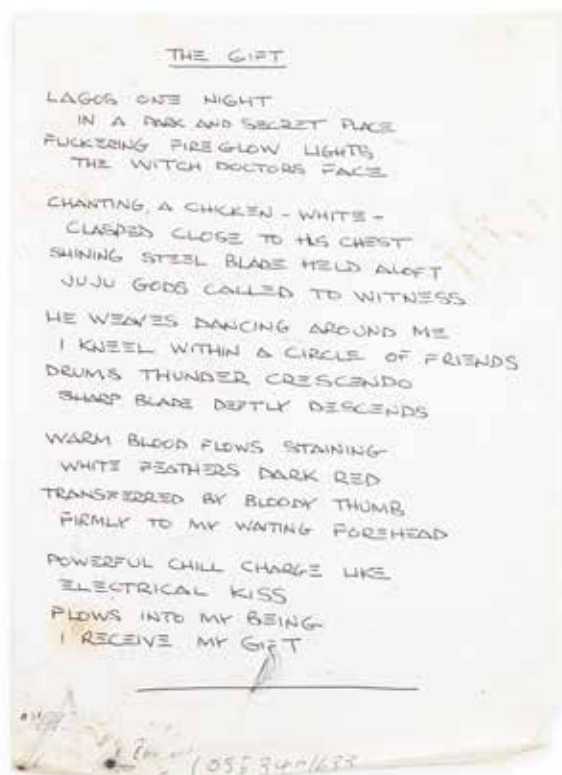 THE GIFT
LAGOS ONE NIGHT
IN A DARK AND SECRET PLACE
FLICKERING FIREGLOW LIGHTS
THE WITCH DOCTORS FACE
CHANTING, A CHICKEN - WHITE -
CLASPED CLOSE TO HIS CHEST
SHINING STEEL BLADE HELD ALOFT
JUJU GODS CALLED TO WITNESS
HE WEAVES DANCING AROUND ME
I KNEEL WITHIN A CIRCLE OF FRIENDS
DRUMS THUNDER CRESCENDO
SHARP BLADE DEFTLY DESCENDS
WARM BLOOD FLOWS STAINING
WHITE FEATHERS DARK RED
TRANSFERRED BY BLOODY THUMB
FIRMLY TO MY WAITING FOREHEAD
POWERFUL CHILL CHARGE LIKE
ELECTRICAL KISS
FLOWS INTO MY BEING
I RECEIVE MY GIFT